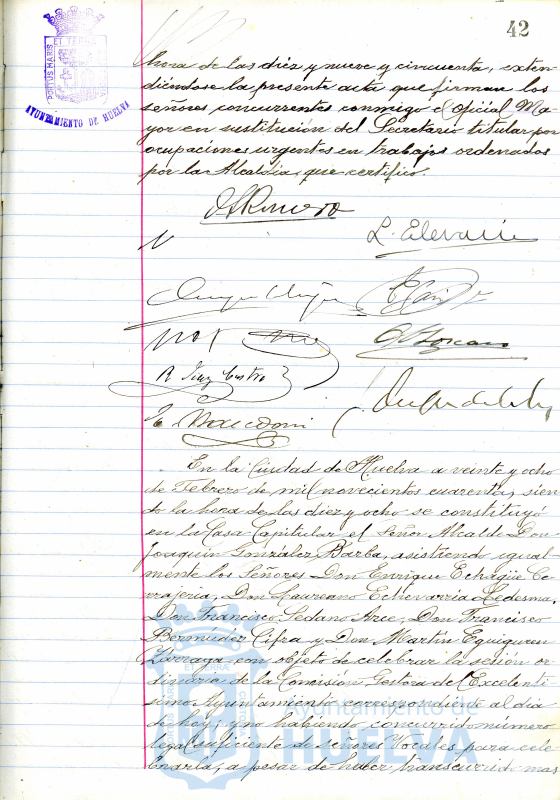 42
PORTUS MARIS
AYUNTAMIENTO DE HUELVA
hora de las diez y nueve y cincuenta, exten-
diéndose la presente acta que firman los
señores concurrentes conmigo el Oficial Ma-
yor en sustitución del Secretario titular por
ocupaciones urgentes en trabajos ordenados
por la Alcaldía, que certifico.
L. Echevarría
En la Ciudad de Huelva a veinte y ocho
de Febrero de mil novecientos cuarenta, sien
do la hora de las diez y ocho se constituyó
en la Casa Capitular el Señor Alcalde Don
Joaquín González Barba, asistiendo igual
mente los Señores Don Enrique Echagüe Ce
rrajería, Don Laureano Echevarría Ledesma,
Don Francisco Sedano Arce, Don Francisco
Bermúdez Cifra y Don Martín Eguiguren
Zárraga, con objeto de celebrar la sesión or
dinaria de la Comisión Gestora del Excelentí
simo Ayuntamiento correspondiente al día
de hoy; y no habiendo concurrido número
legal suficiente de señores Vocales para cele
brarla, a pesar de haber transcurrido mas
Ayuntamiento de
HUELVA